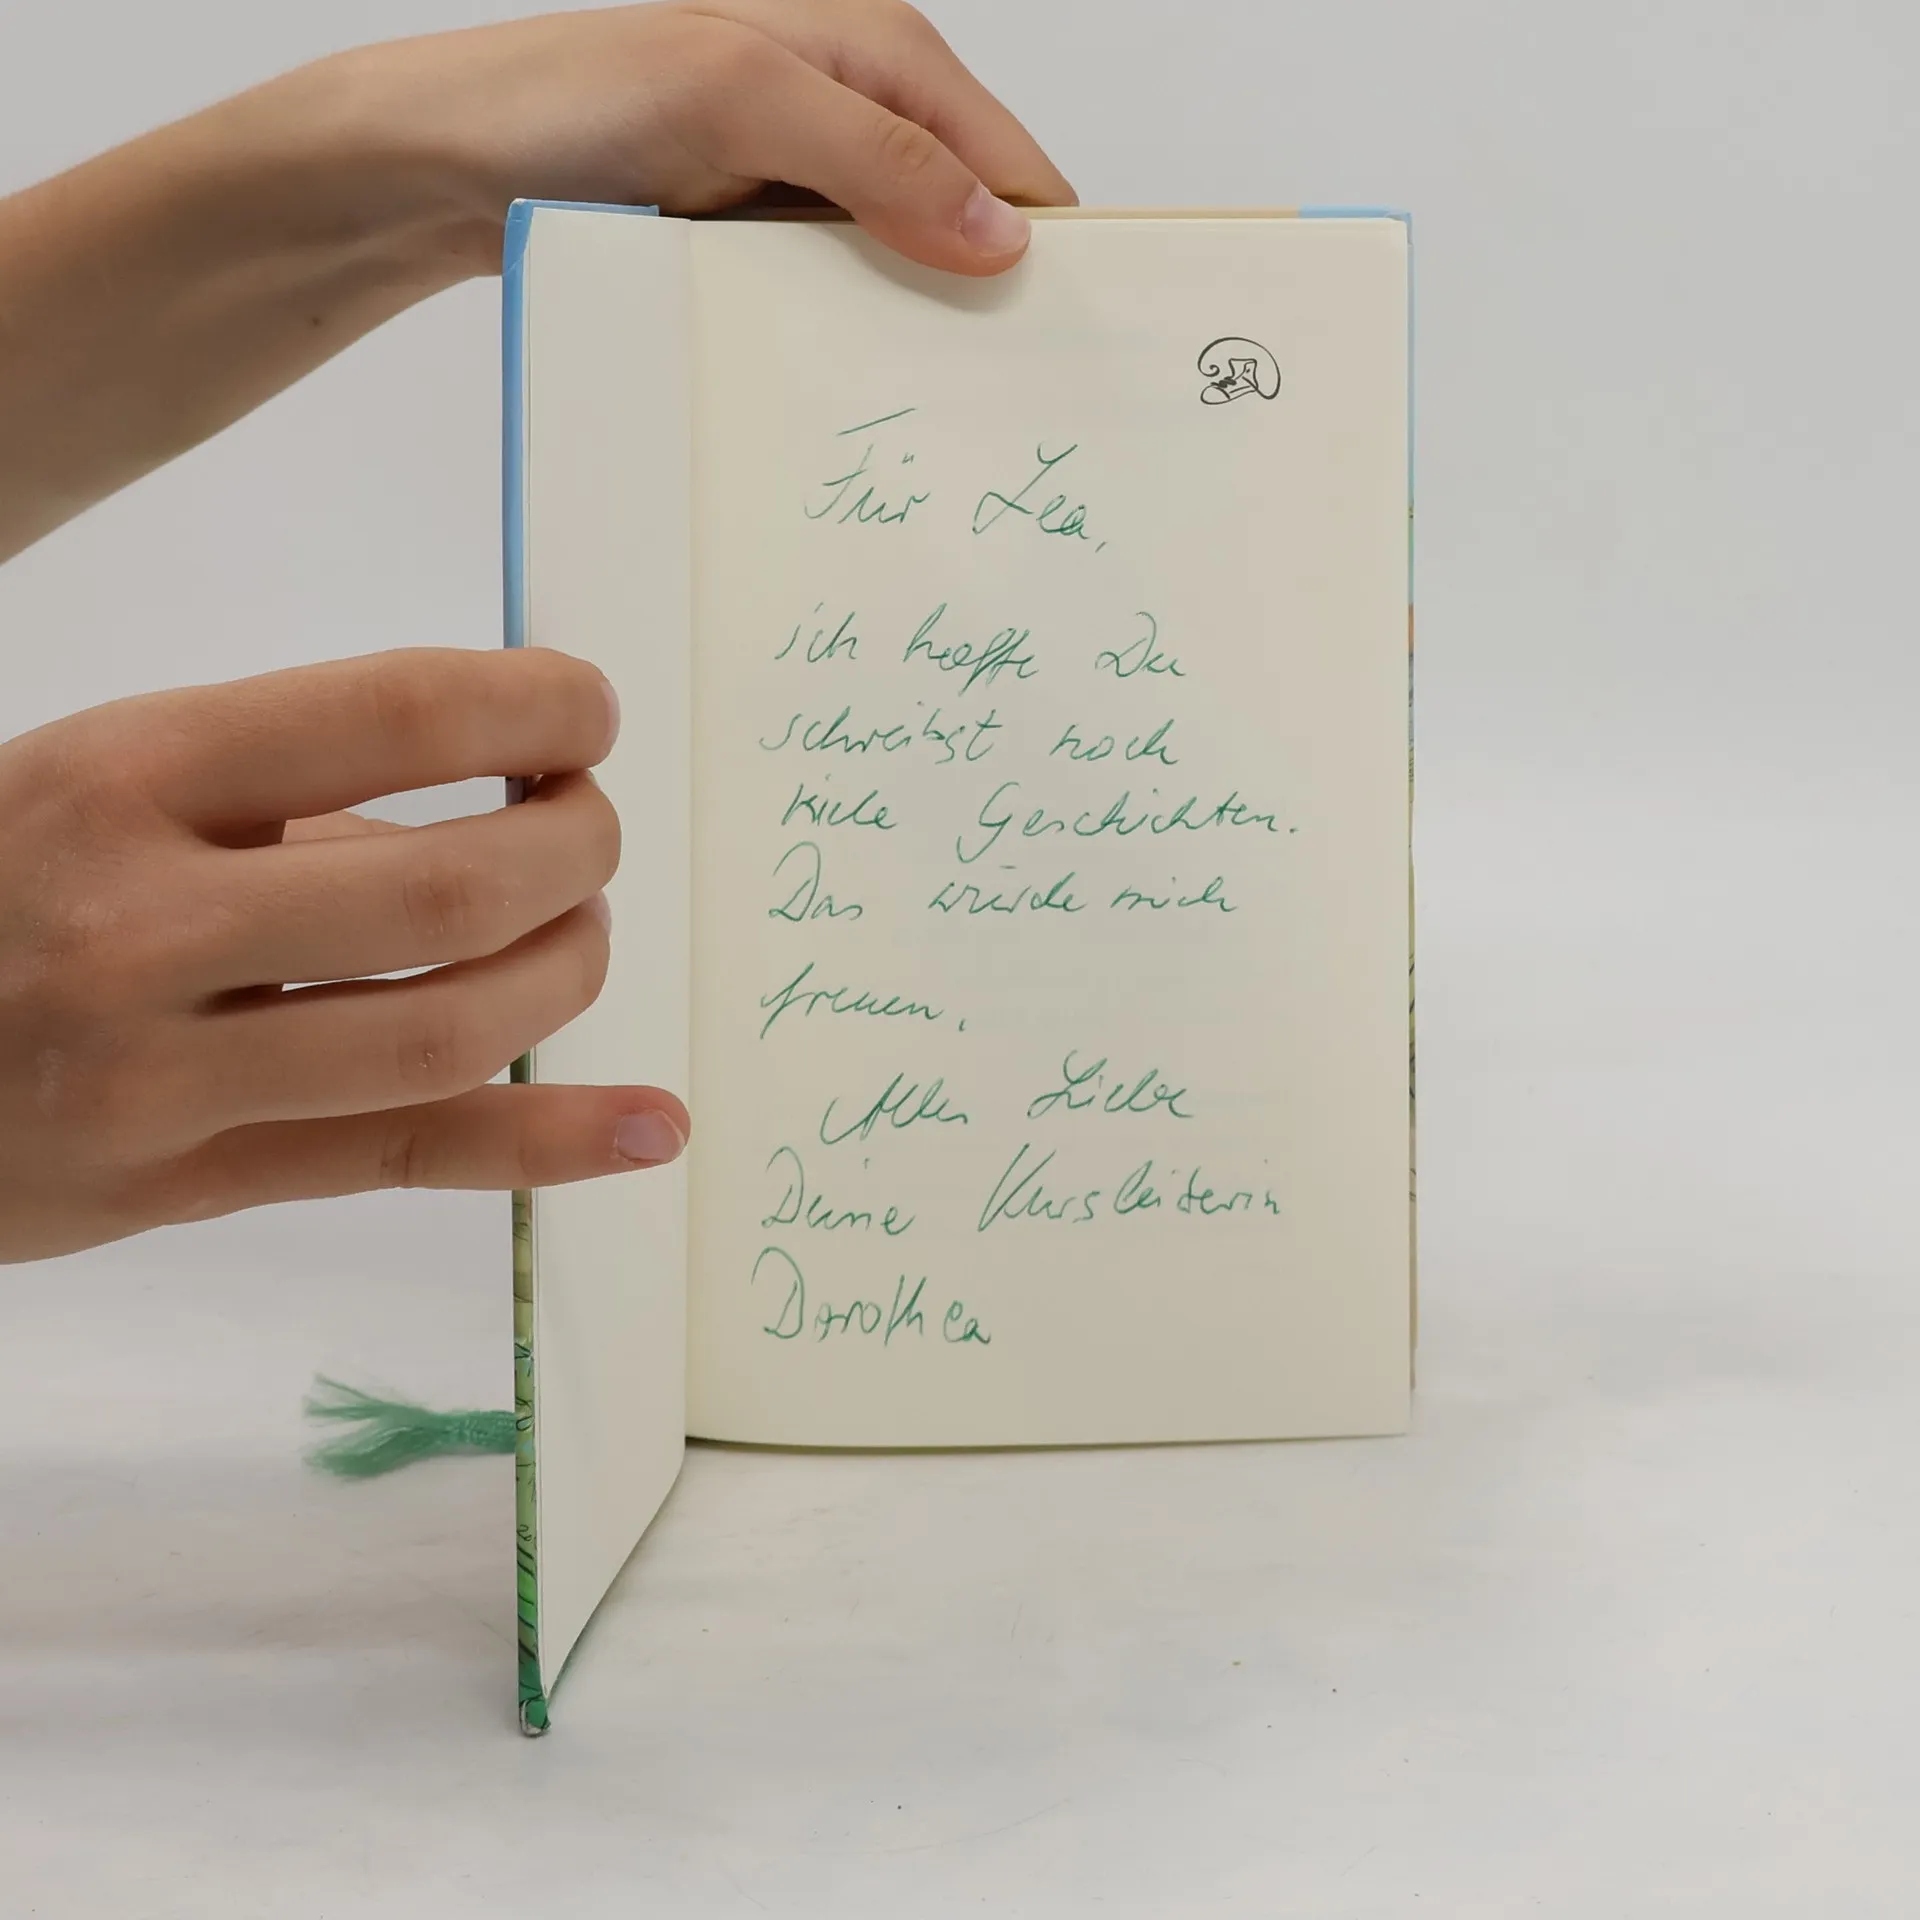 Für Lea,
ich hoffe Du
schreibst noch
viele Geschichten.
Das würde mich
freuen.
Alles Liebe
Deine Kursleiterin
Dorothea